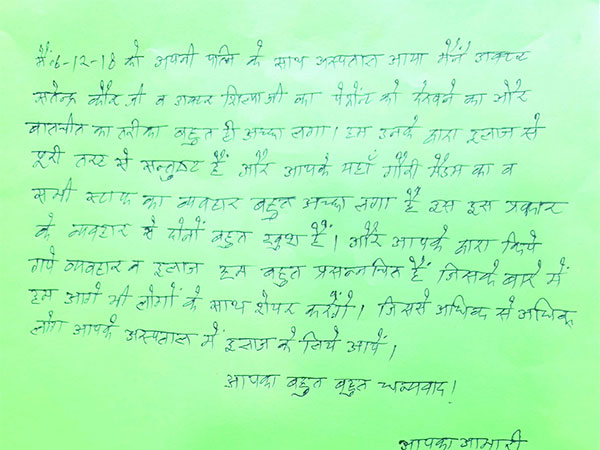 मैं 6-12-18 को अपनी पत्नि के साथ अस्पताल आया मैंने डाक्टर
सतेन्द्र कौर जी व डाक्टर शिल्पा जी का पेशेंट को देखने का और
बातचीत का तरीका बहुत ही अच्छा लगा। हम उनके द्वारा इलाज से
पूरी तरह से सन्तुष्ट हैं और आपके यहाँ गौरी मैडम का व
सभी स्टाफ का व्यवहार बहुत अच्छा लगा है हम इस प्रकार
के व्यवहार से दोनों बहुत खुश हैं। और आपके द्वारा किये
गये व्यवहार व इलाज हम बहुत प्रसन्नचित हैं जिसके बारे में
हम आगे भी लोगों के साथ शेयर करेंगे। जिससे अधिक से अधिक
लोग आपके अस्पताल में इलाज के लिये आयें।
आपका बहुत बहुत धन्यवाद!
आपका आभारी